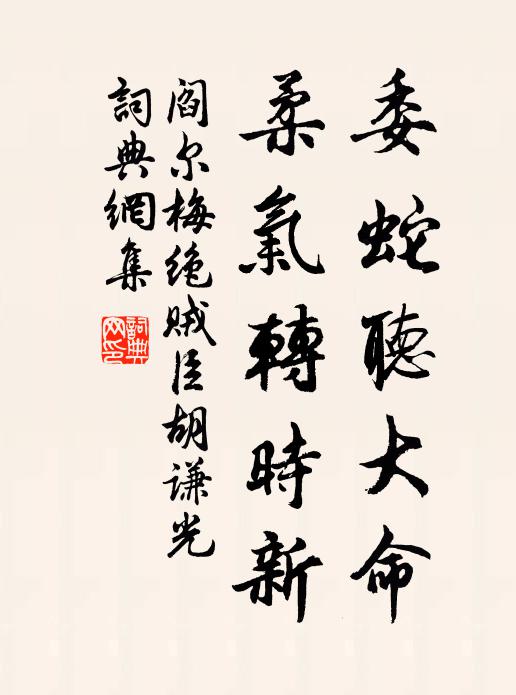 委蛇聽大命
柔氣轉時新
阎尔梅绝贼臣胡谦光
詞典網集
詞典网印